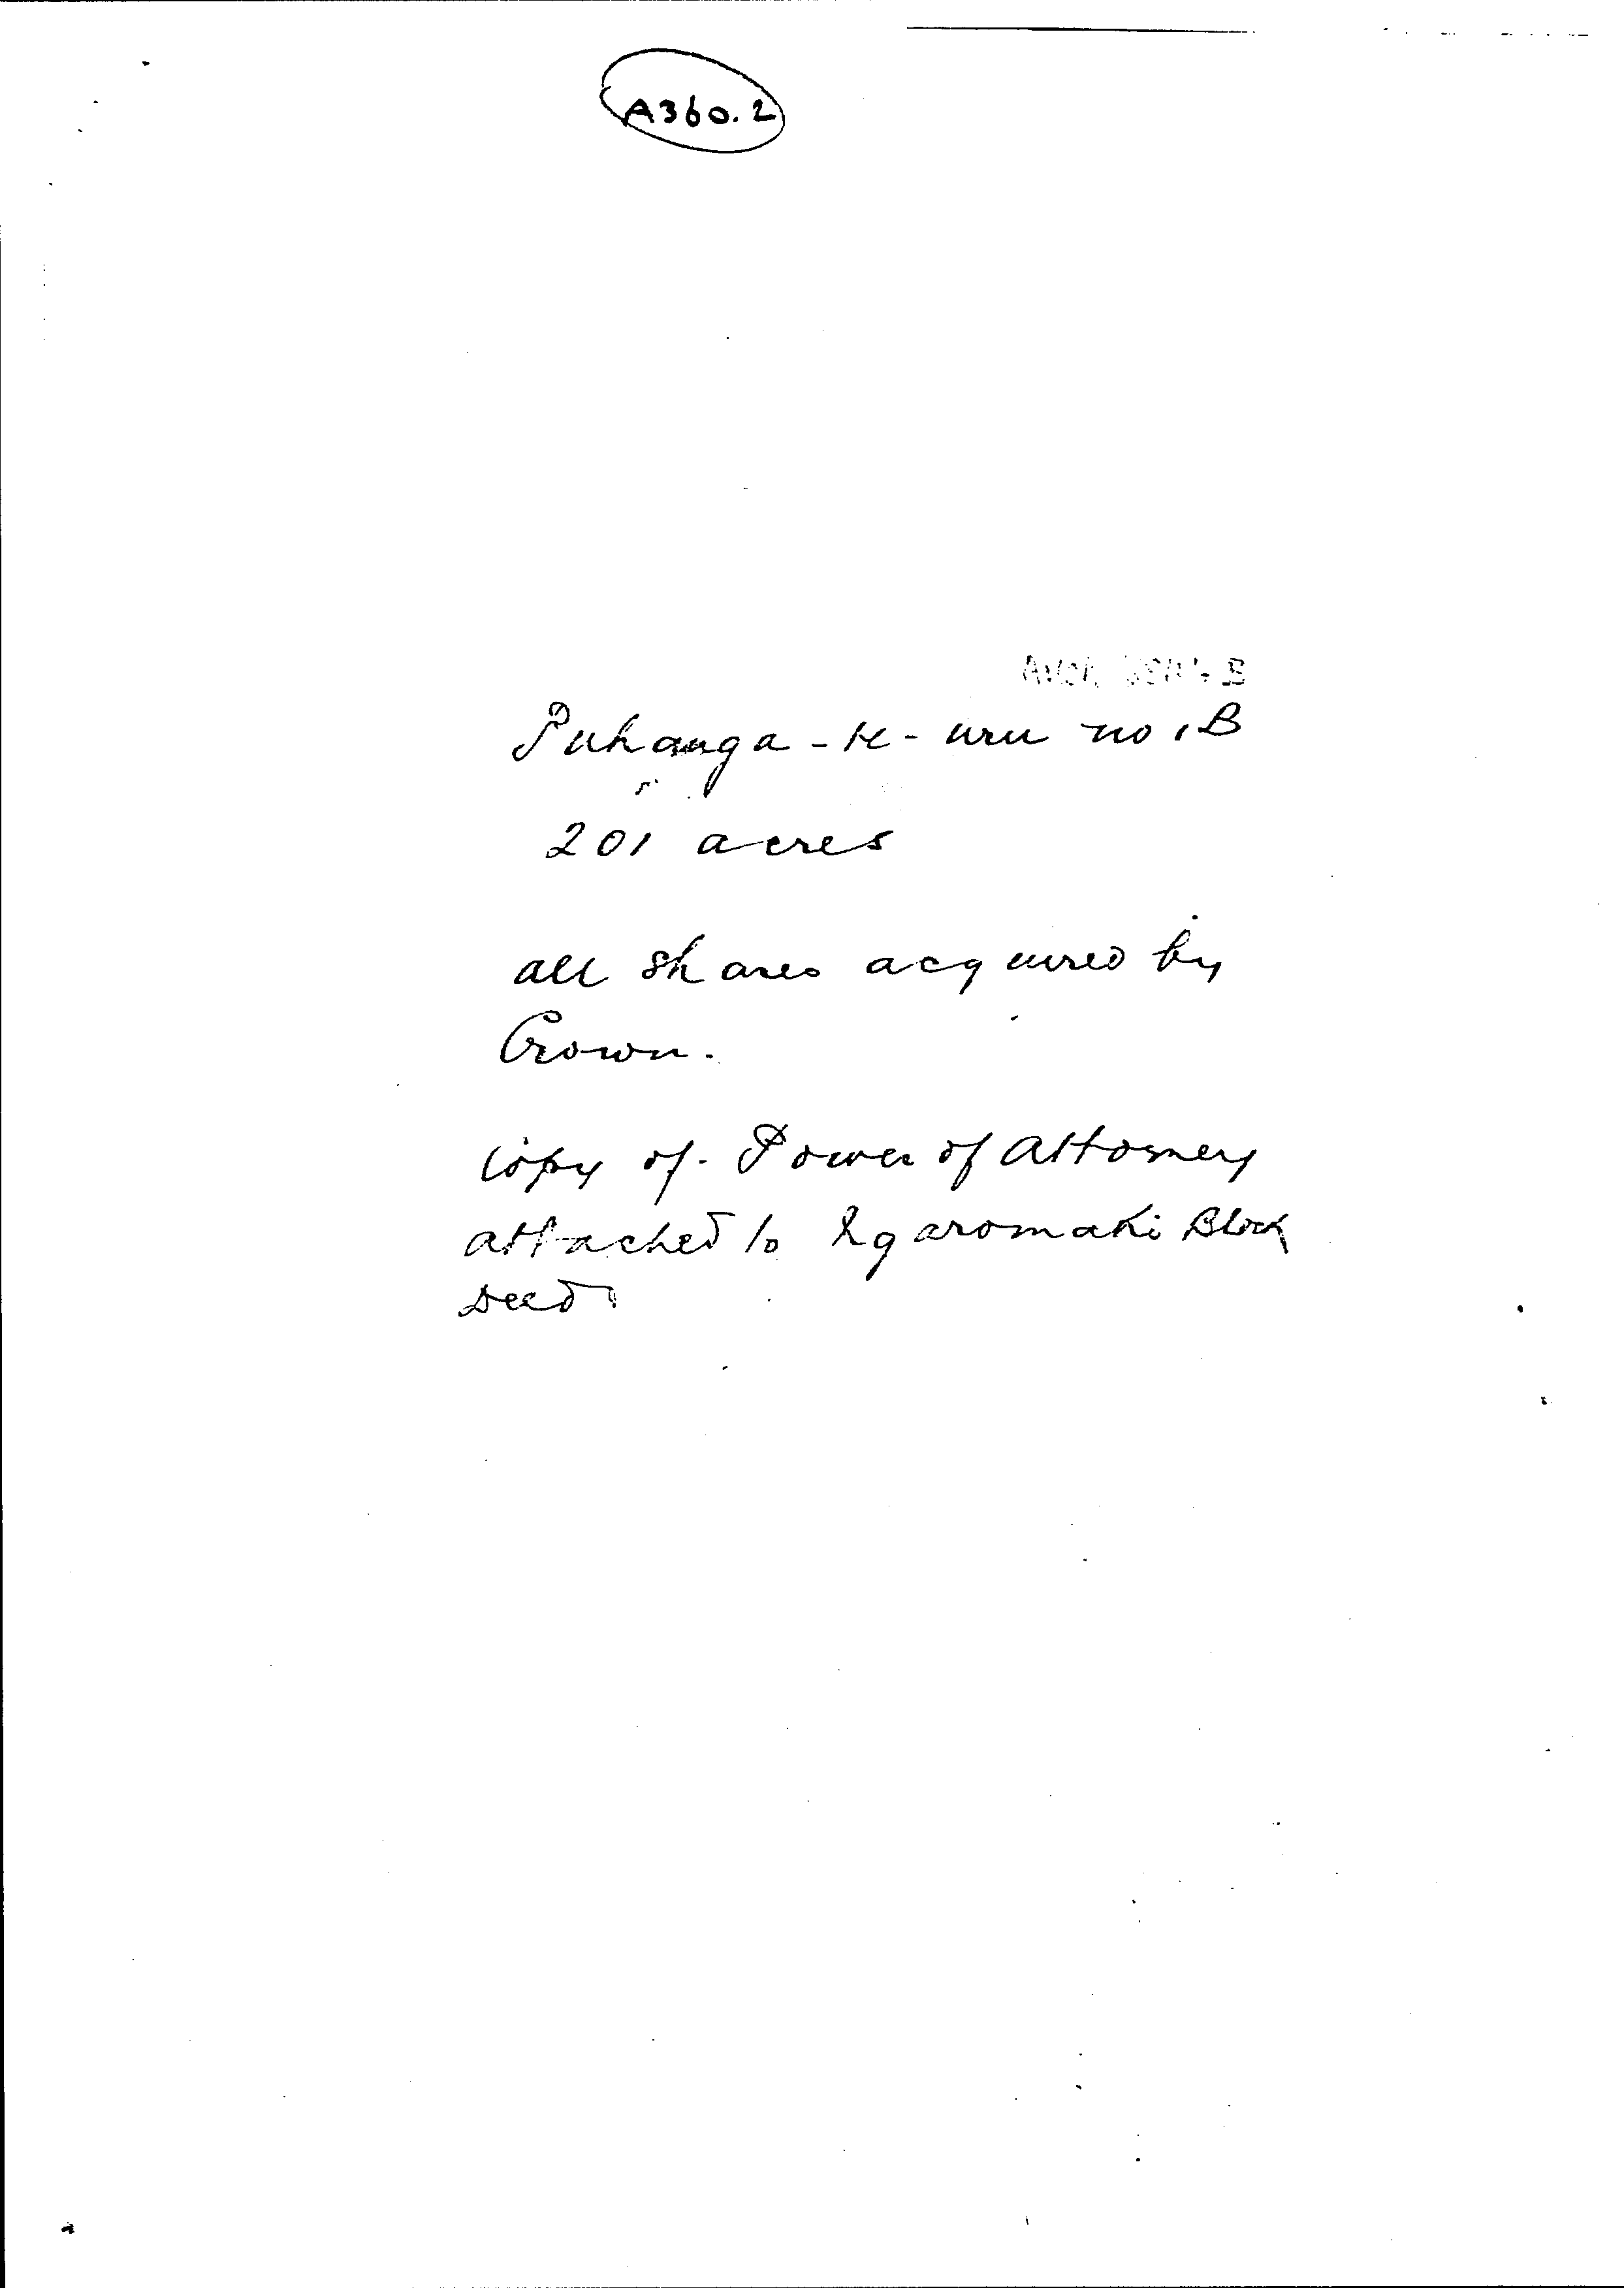 A360.2
Puhanga-te-uru no 1B
201 acres
all shares acquired by
Crown.
Copy of. Power of Attorney
attached to Ngaromaki Block
Deed.